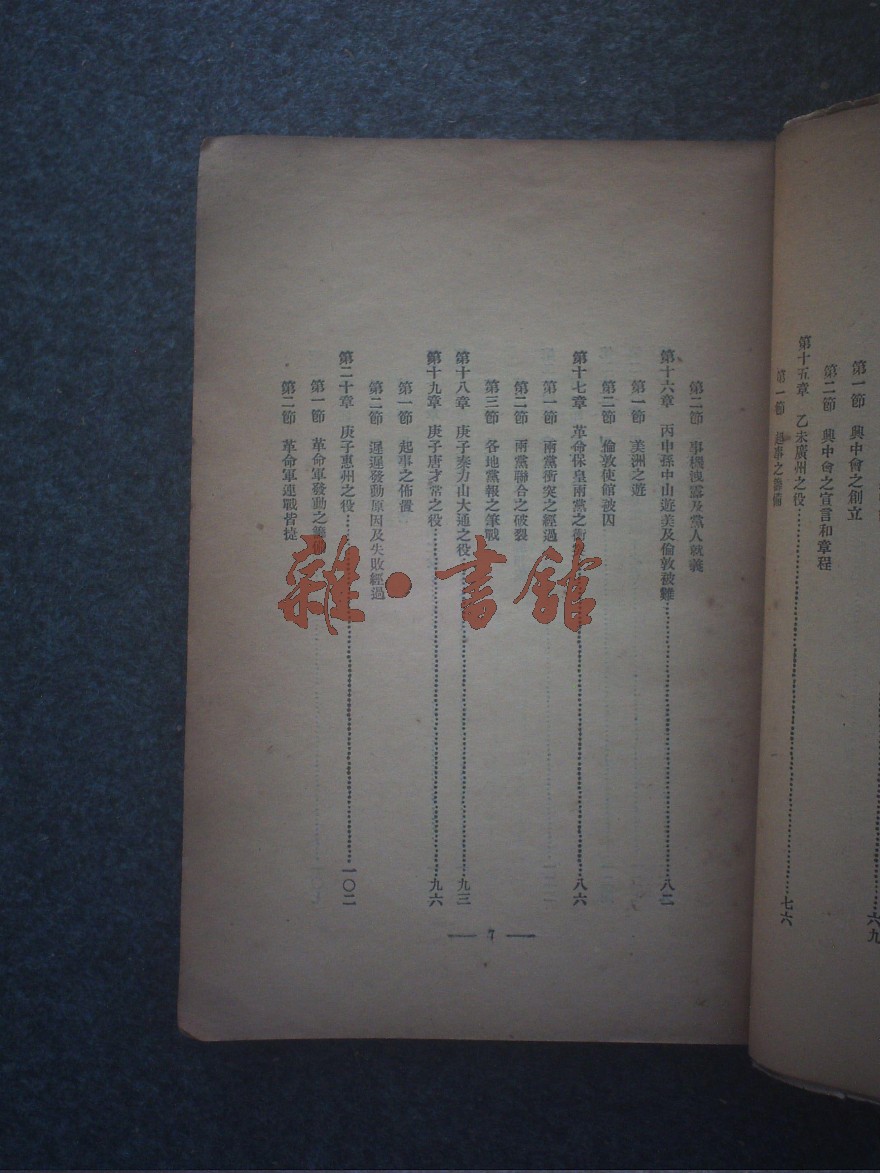 第一節　興中會之創立
第二節　興中會之宣言和章程
第十五章　乙未廣州之役………七六
第一節　起事之籌備
第二節　事機洩露及黨人就義
第十六章　丙申孫中山遊美及倫敦被難………八二
第一節　美洲之遊
第二節　倫敦使館被囚
第十七章　革命保皇兩黨之衝………八六
第一節　兩黨衝突之經過
第二節　兩黨聯合之破裂
第三節　各地黨報之筆戰
第十八章　庚子秦力山大通之役………九三
第十九章　庚子唐才常之役………九六
第一節　起事之佈置
第二節　遲遲發動原因及失敗經過
第二十章　庚子惠州之役………一〇二
第一節　革命軍發動之籌
第二節　革命軍連戰皆捷
— 7 —
六九
雜·書館